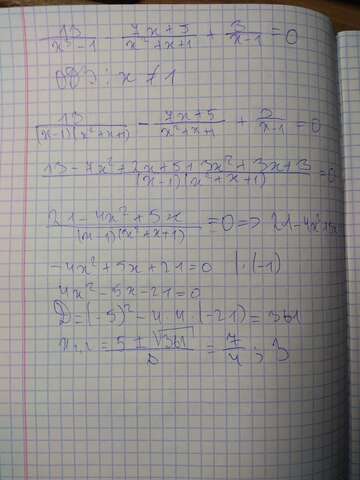 13/(x³-1) - (7x+5)/(x²+x+1) + 3/(x-1) = 0
ОДЗ: x ≠ 1
13/((x-1)(x²+x+1)) - (7x+5)/(x²+x+1) + 3/(x-1) = 0
(13-7x²+2x+5+3x²+3x+3)/((x-1)(x²+x+1)) = 0
(21-4x²+5x)/((x-1)(x²+x+1)) = 0 => 21-4x²+5x
-4x²+5x+21=0 |·(-1)
4x²-5x-21=0
D=(-5)²-4·4·(-21)=361
x₁,₂ = (5±√361)/8 = 7/4; 3